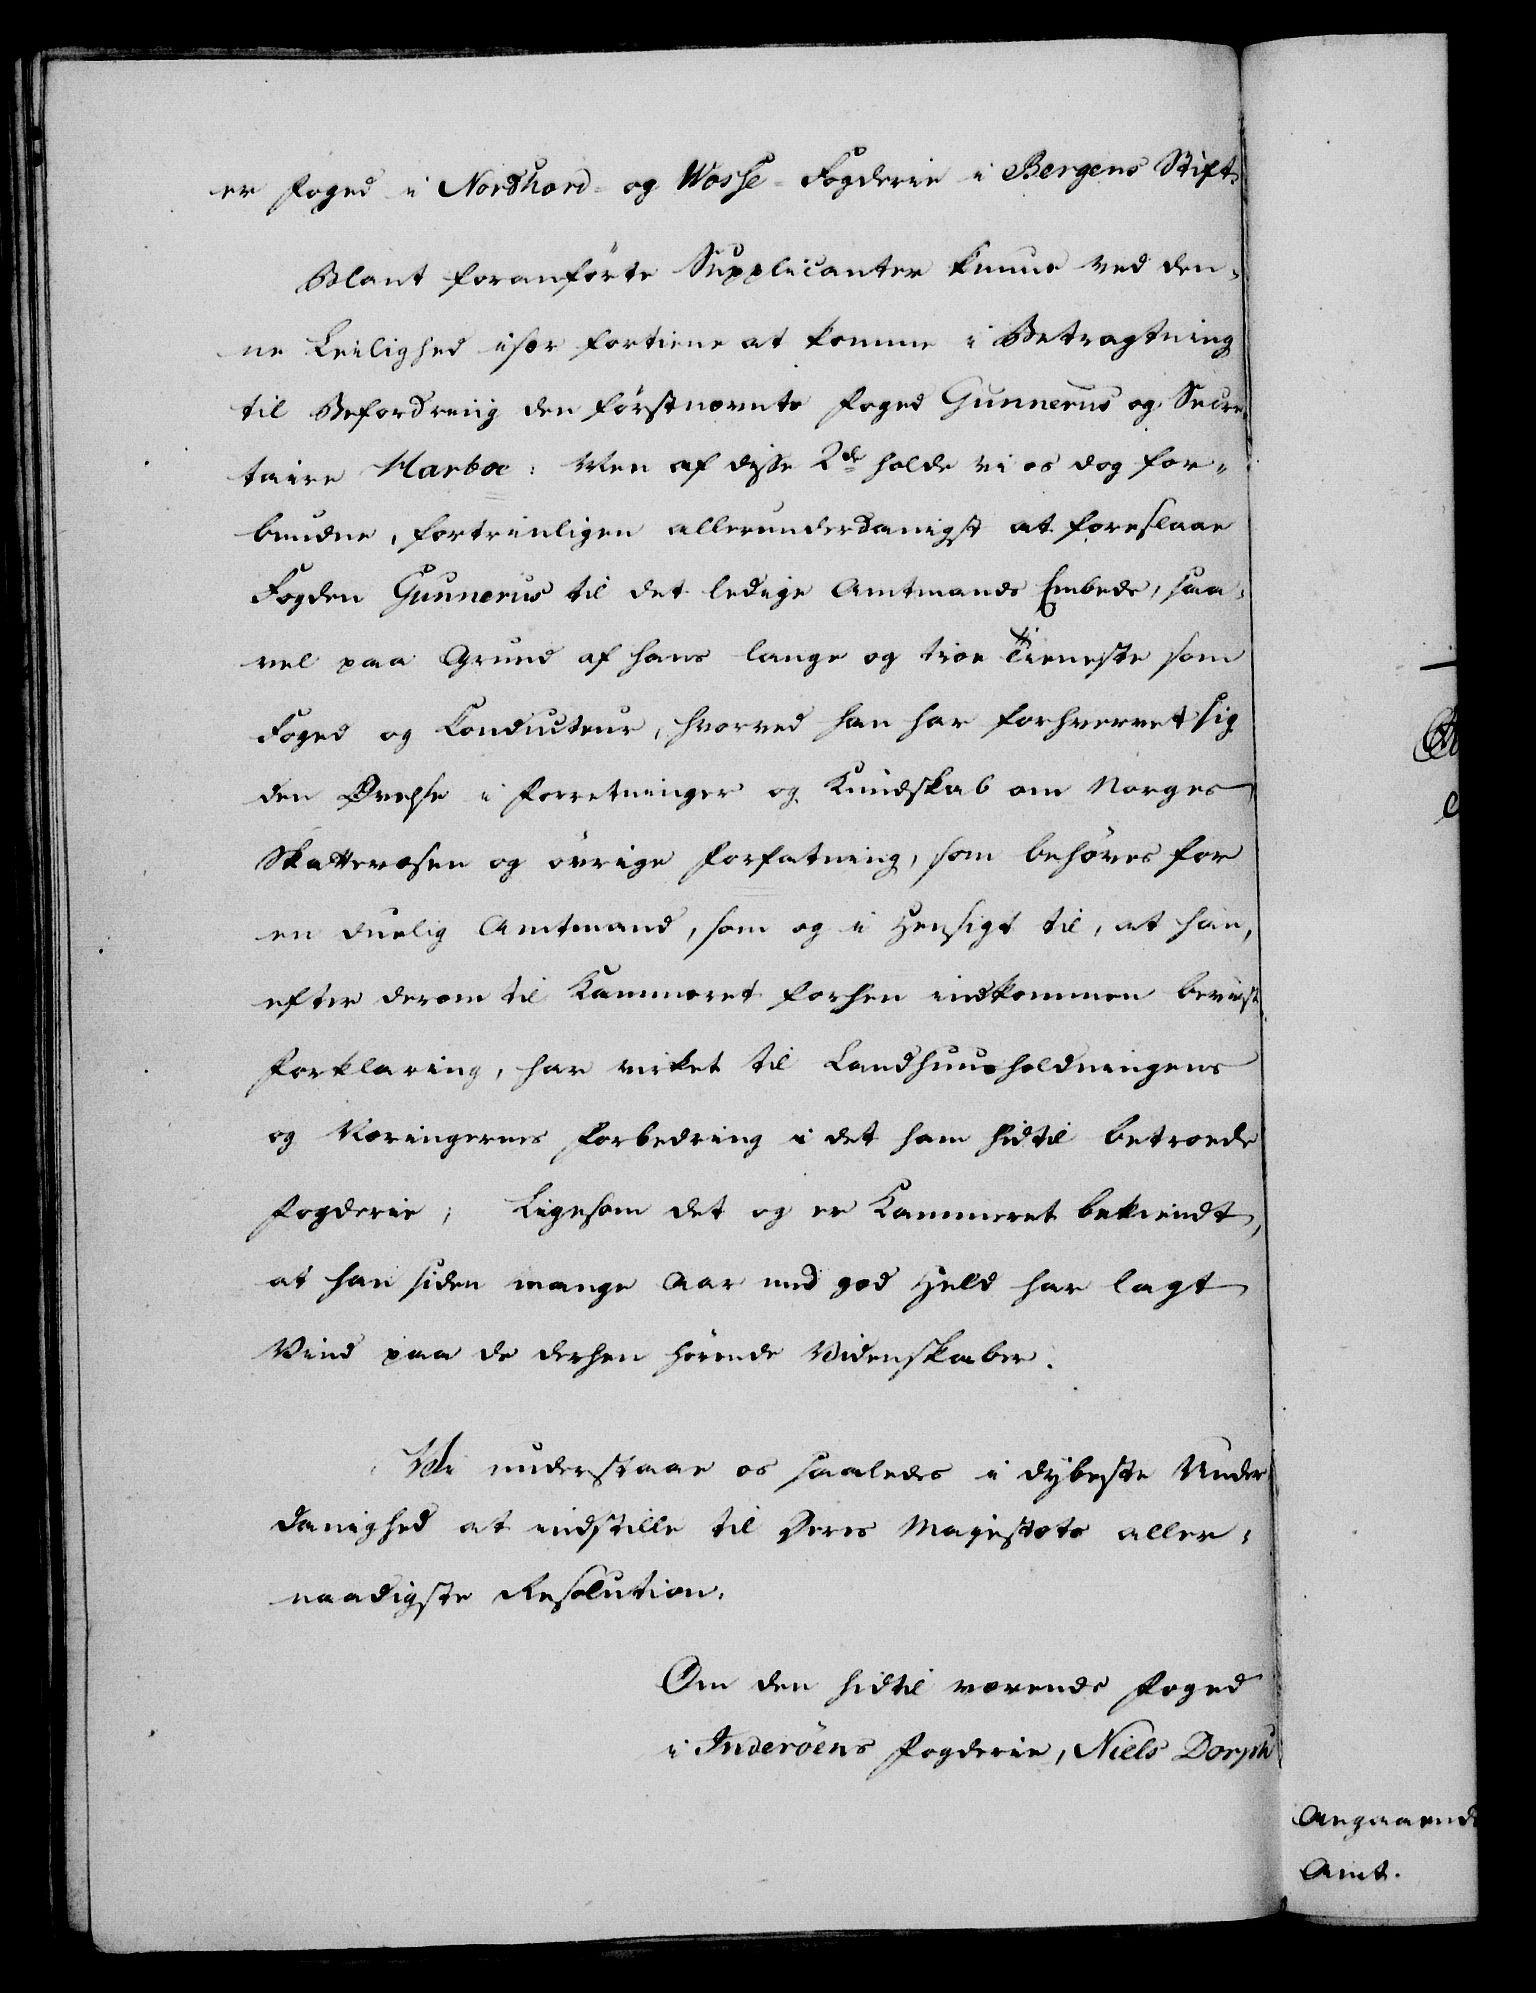 er Foged i Nordhord- og Wosse-Fogderie i Bergens Stift.
Blant foranførte Supplicanter kunne ved den-
ne Leilighed især fortiene at komme i Betragtning
til Befordring den førstnævnte Foged Gunnerus og Secre-
taire Harboe: Men af disse 2de holde vi os dog for-
bundne, fortrinligen allerunderdanigst at foreslaae
Fogden Gunnerus til det ledige Amtmands Embede, saa-
vel paa Grund af hans lange og troe Tieneste som
Foged og Conducteur, hvorved han har forhvervet sig
den Øvelse i Forretninger og Kundskab om Norges
Skattevæsen og øvrige Forfatning, som behøves for
en duelig Amtmand, som og i Hensigt til, at han,
efter derom til Kammeret forhen indkommen beviist
Forklaring, har virket til Landhuusholdningens
og Næringernes Forbedring i det ham hidtil betroede
Fogderie; Ligesom det og er Kammeret bekiendt,
at han siden mange Aar med god Held har lagt
Vind paa de derhen hørende Videnskaber.
Vi understaae os saaledes i dybeste Under
danighed at indstille til Deres Majestæts aller-
naadigste Resolution:
Om den hidtil værende Foged
i Inderøens Fogderie, Niels Dorph
Angaaende
Amt.